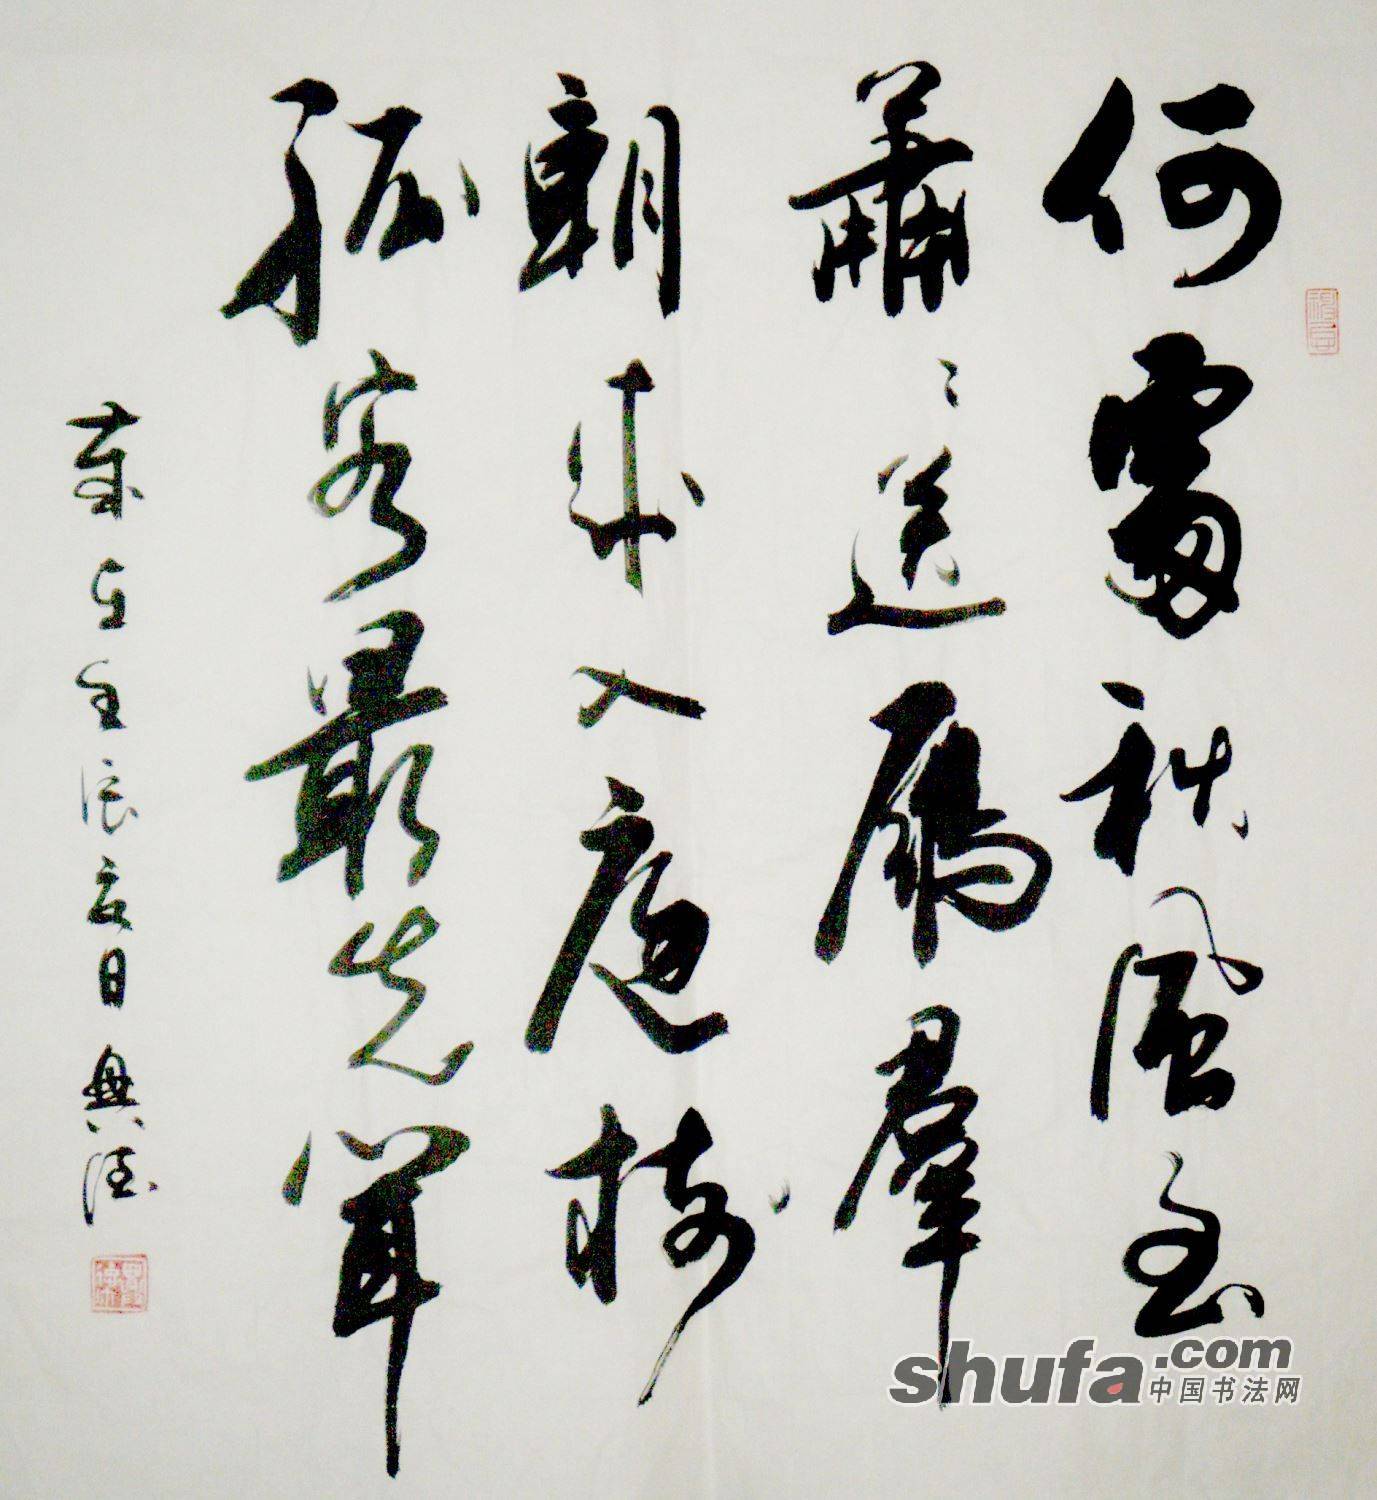 何處秋風至
蕭〻送鴈羣
朝來入庭樹
孤客最先聞
歲在壬辰夏日興
shufa.com
中国书法网